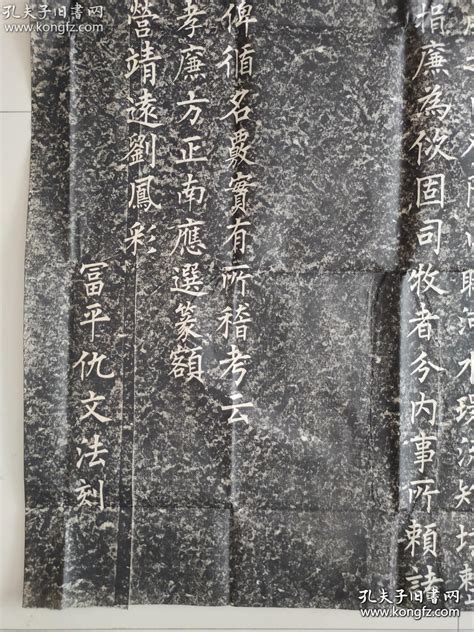 孔夫子旧书网
www.kongfz.com
河水環流
捐廉為佽固司牧者分内事所賴諸
俾循名覈實有所稽考云
孝廉方正南應選篆額
營靖遠劉鳳彩
冨平仇文法刻
孔夫子旧书网
www.kongfz.com